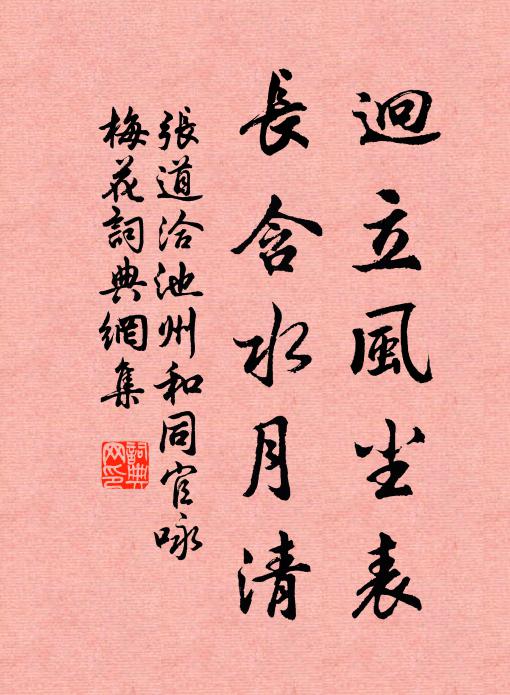 迥立風尘表
長含水月清
張道洽池州和同官咏
梅花詞典網集
詞典
网印